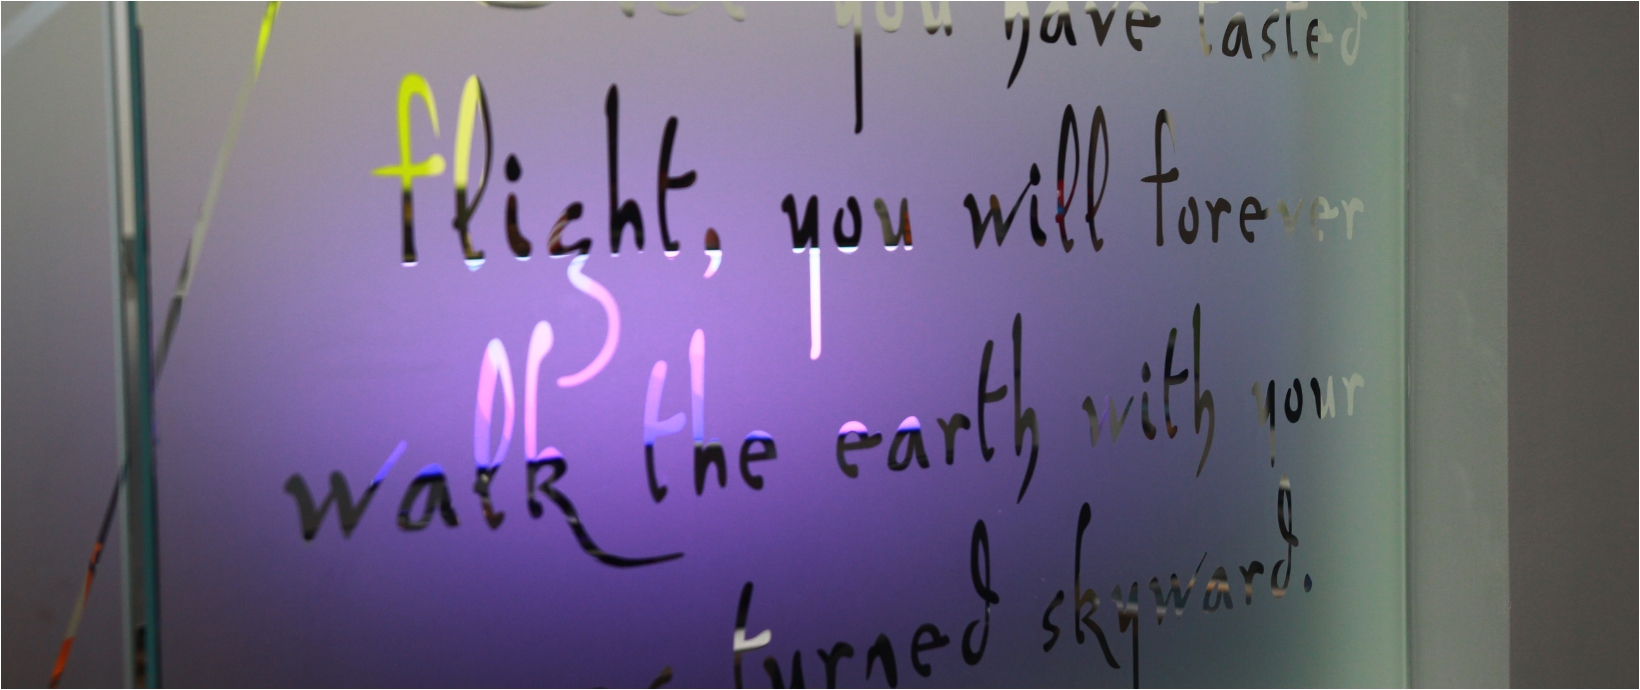 you have tasted
flight, you will forever
walk the earth with your
turned skyward.